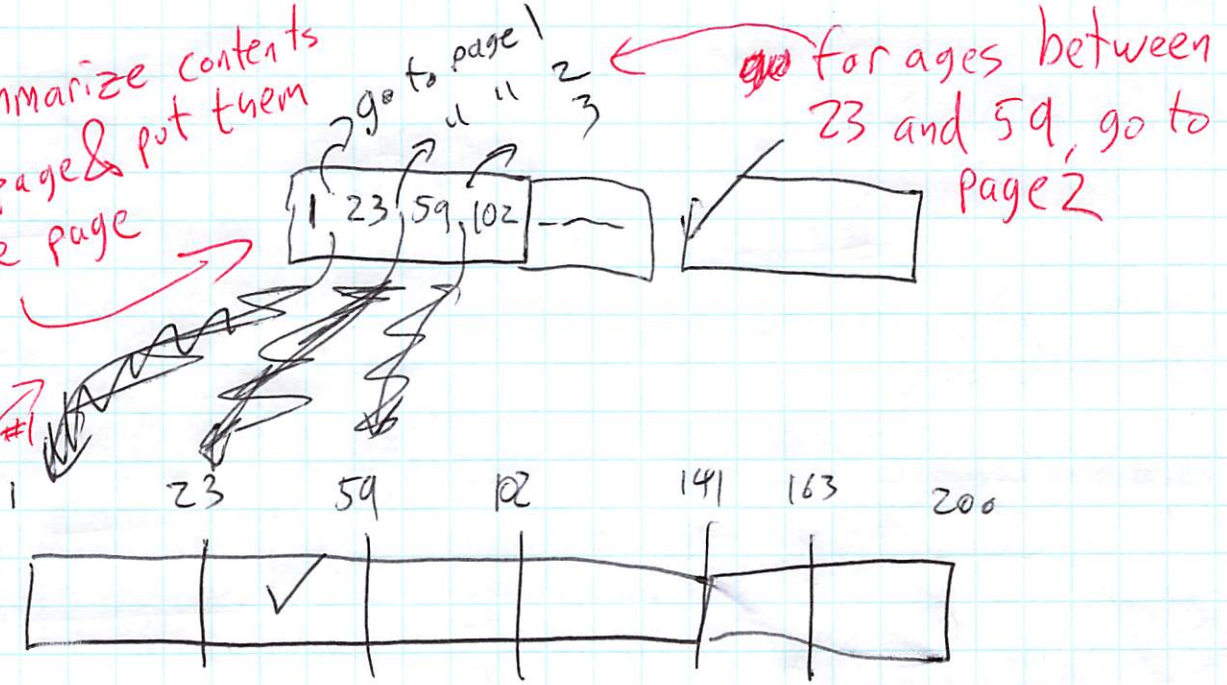 mmarize contents
page & put them
e page
go to page 1
" " 2
3
for ages between
23 and 59, go to
page 2
1 23 59 102
#1
1 23 59 102 141 163 200